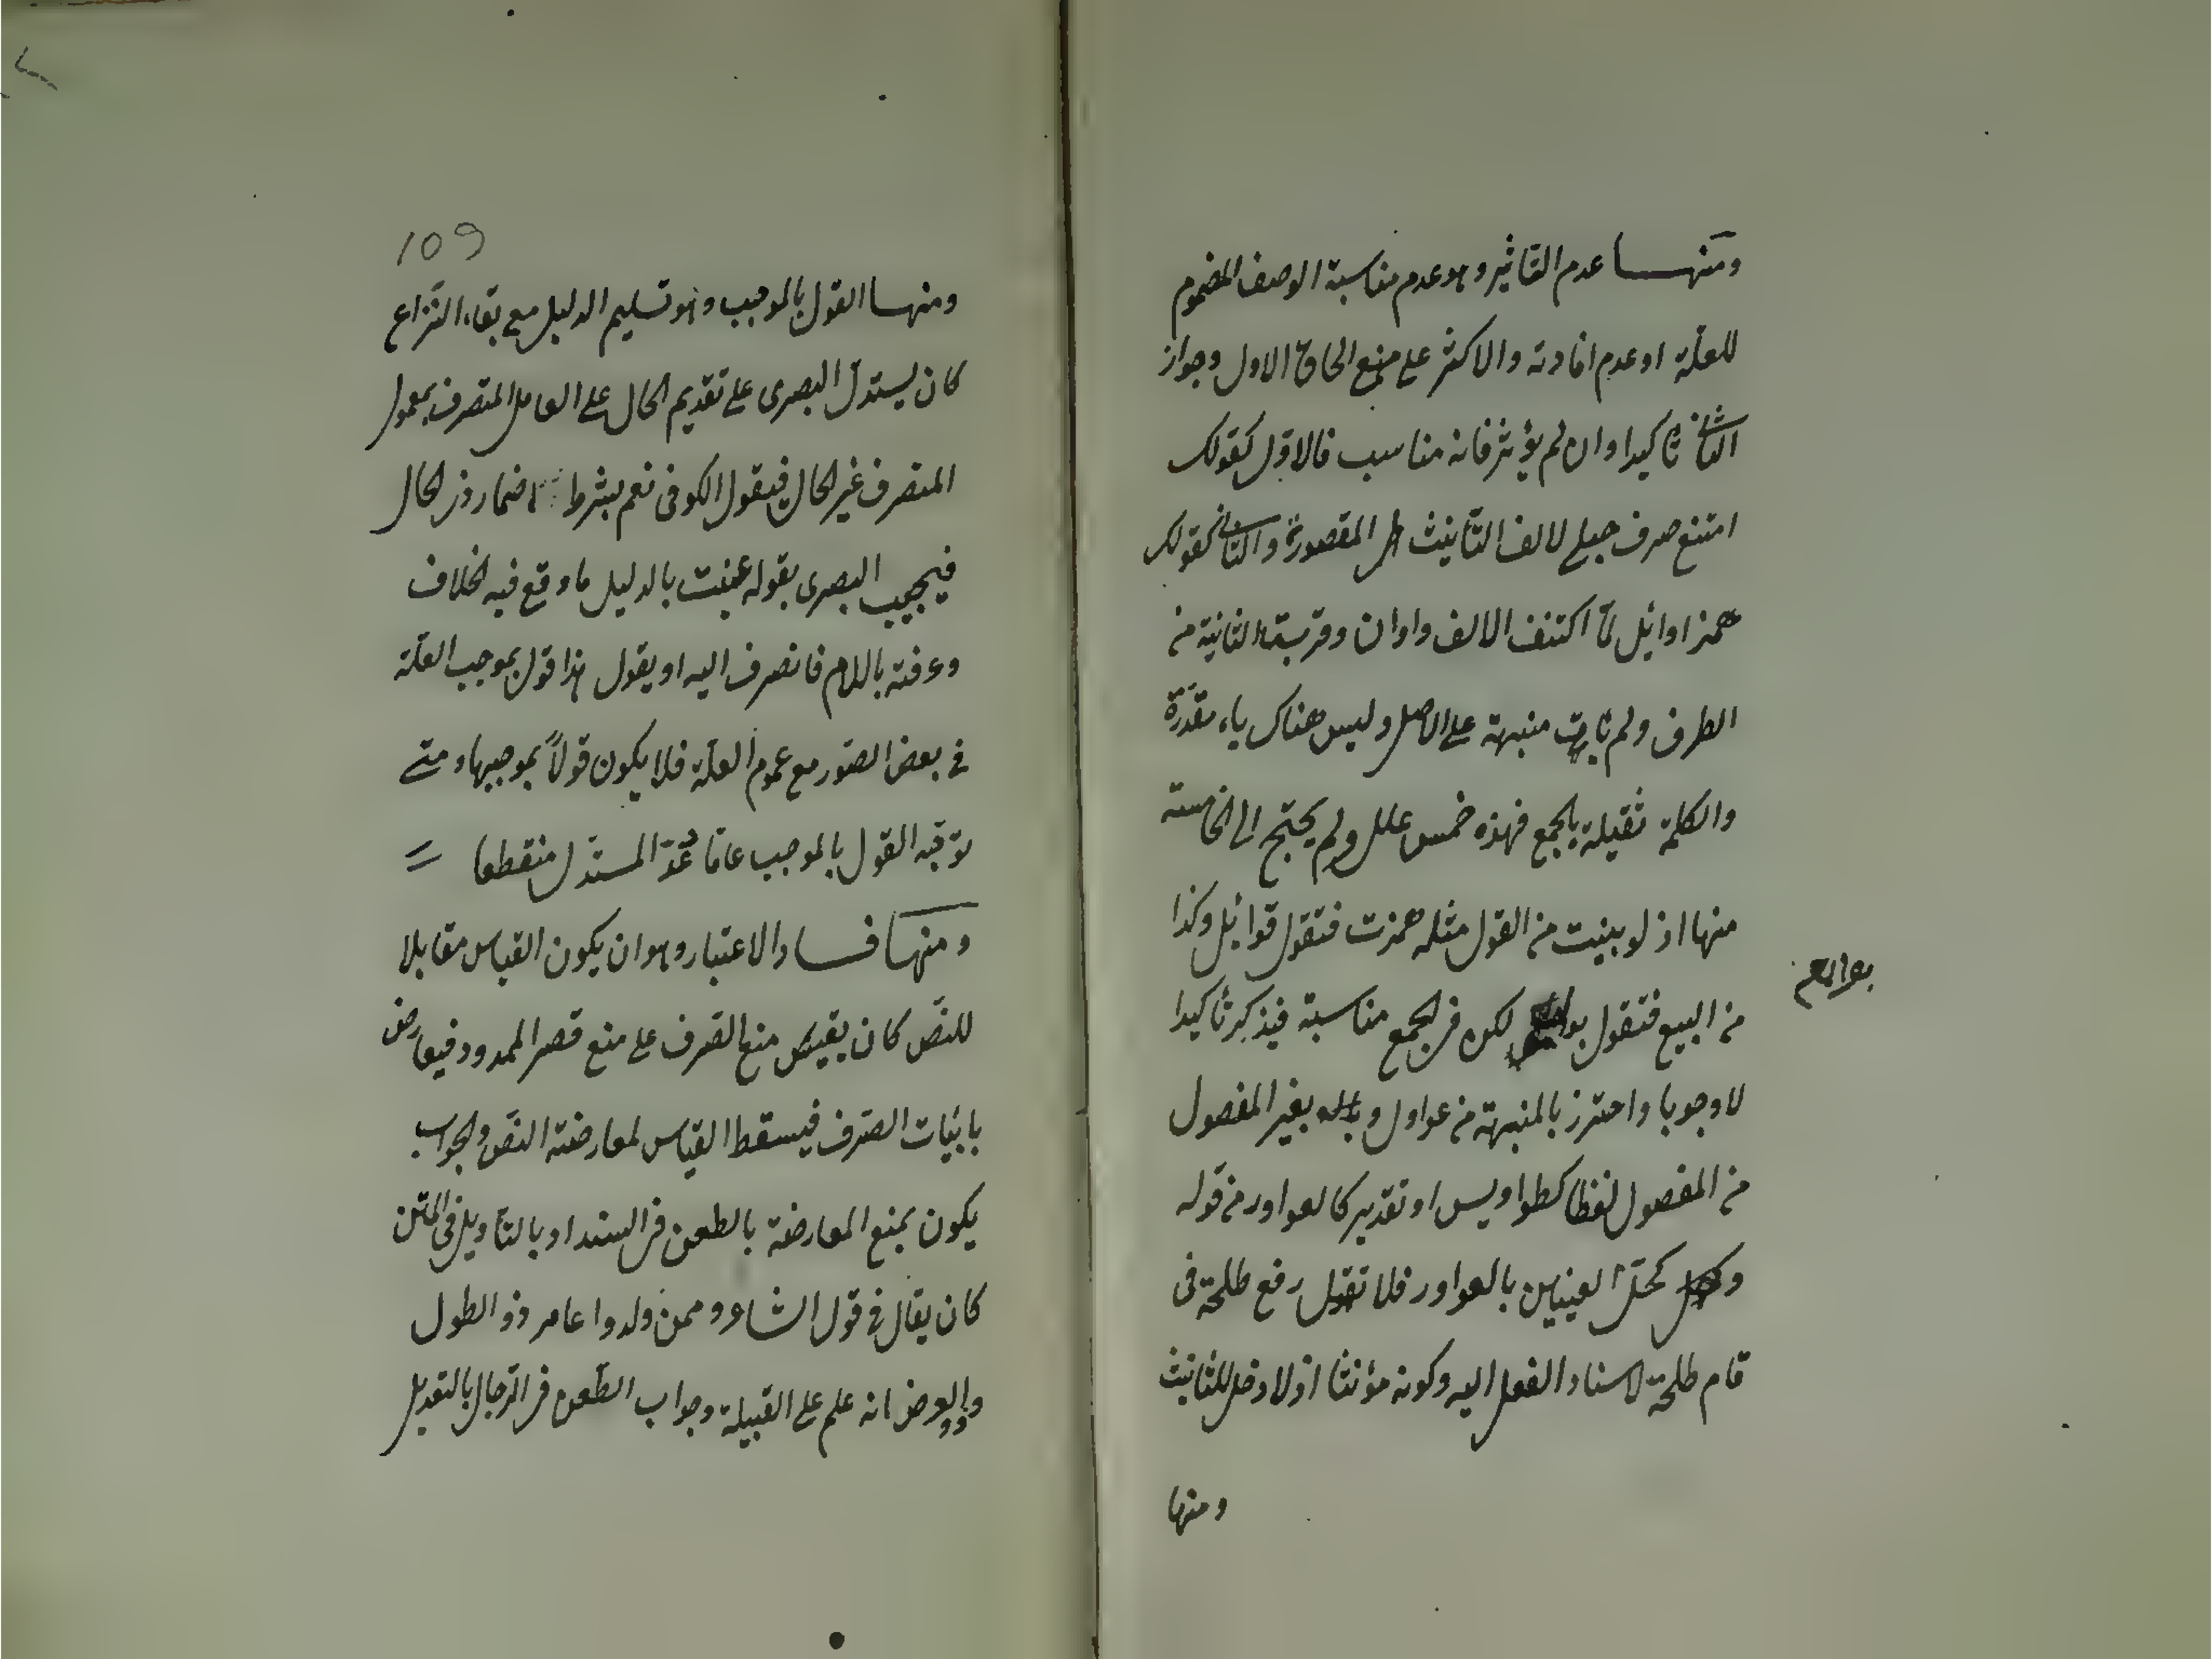 ومنها عدم التاثير وهو عدم مناسبة الوصف المضموم
للعلّة او عدم افادته والاكثر على منع الحاق الاول وجواز
الثاني تاكيدا وان لم يؤثر فانه مناسب فالاوّل كقولك
امتنع صرف حبلى لالف التأنيث المقصورة والثاني كقولك
همز اوائل لمّا اكتنف الالف واوان وقربت الثانية من
الطرف ولم تات منبهة على الاصل وليس هناك ياء مقدّرة
والكلمة ثقيلة بالجمع فهذه خمس علل ولم يحتج الى الخامسة
منها اذ لو بنيت من القول مثله همزت فتقول قوائل وكذا
من البيع فتقول لكن في الجمع مناسبة فيذكر تأكيدا
بوائع
لا وجوبا واحترز بالمنبهة من عواول وبغير المفصول
من المفصول لفظا كطواويس او تقدير كالعواور من قوله
وكحّل العينين بالعواور فلا تقول رفع طلحة في
قام طلحة لاسناد الفعل اليه وكونه مؤنثا اذ لا دخل للتانيث
ومنها
109
ومنها القول بالموجب وهو تسليم الدليل مع بقاء النّزاع
كان يستدلّ البصرى على تقديم الحال على العامل المتصرف بمعمول
المتصرف غير الحال فيقول الكوفى نعم بشرط اضمار ذى الحال
فيجيب البصرى بقوله عنيت بالدليل ما وقع فيه الخلاف
وعرفته باللام فانصرف اليه او يقول هذا قول بموجب العلّة
في بعض الصّور مع عموم العلّة فلا يكون قولاً بموجبها ومتى
توجّه القول بالموجب عامّا عُدّ المستدّل منقطعا
ومنها فساد الاعتبار وهو ان يكون القياس مقابلا
للنصّ كان يقيس منع الصّرف على منع قصر الممدود فيعارض
باثبات الصّرف فيسقط القياس لمعارضة النصّ والجواب
يكون بمنع المعارضة بالطعن في السند او بالتأويل فى المتن
كان يقال في قول الشاعر وممن ولدوا عامر ذو الطول
وذو العرض انه علم على القبيلة وجواب الطّعن في الرّجال بالتعديل